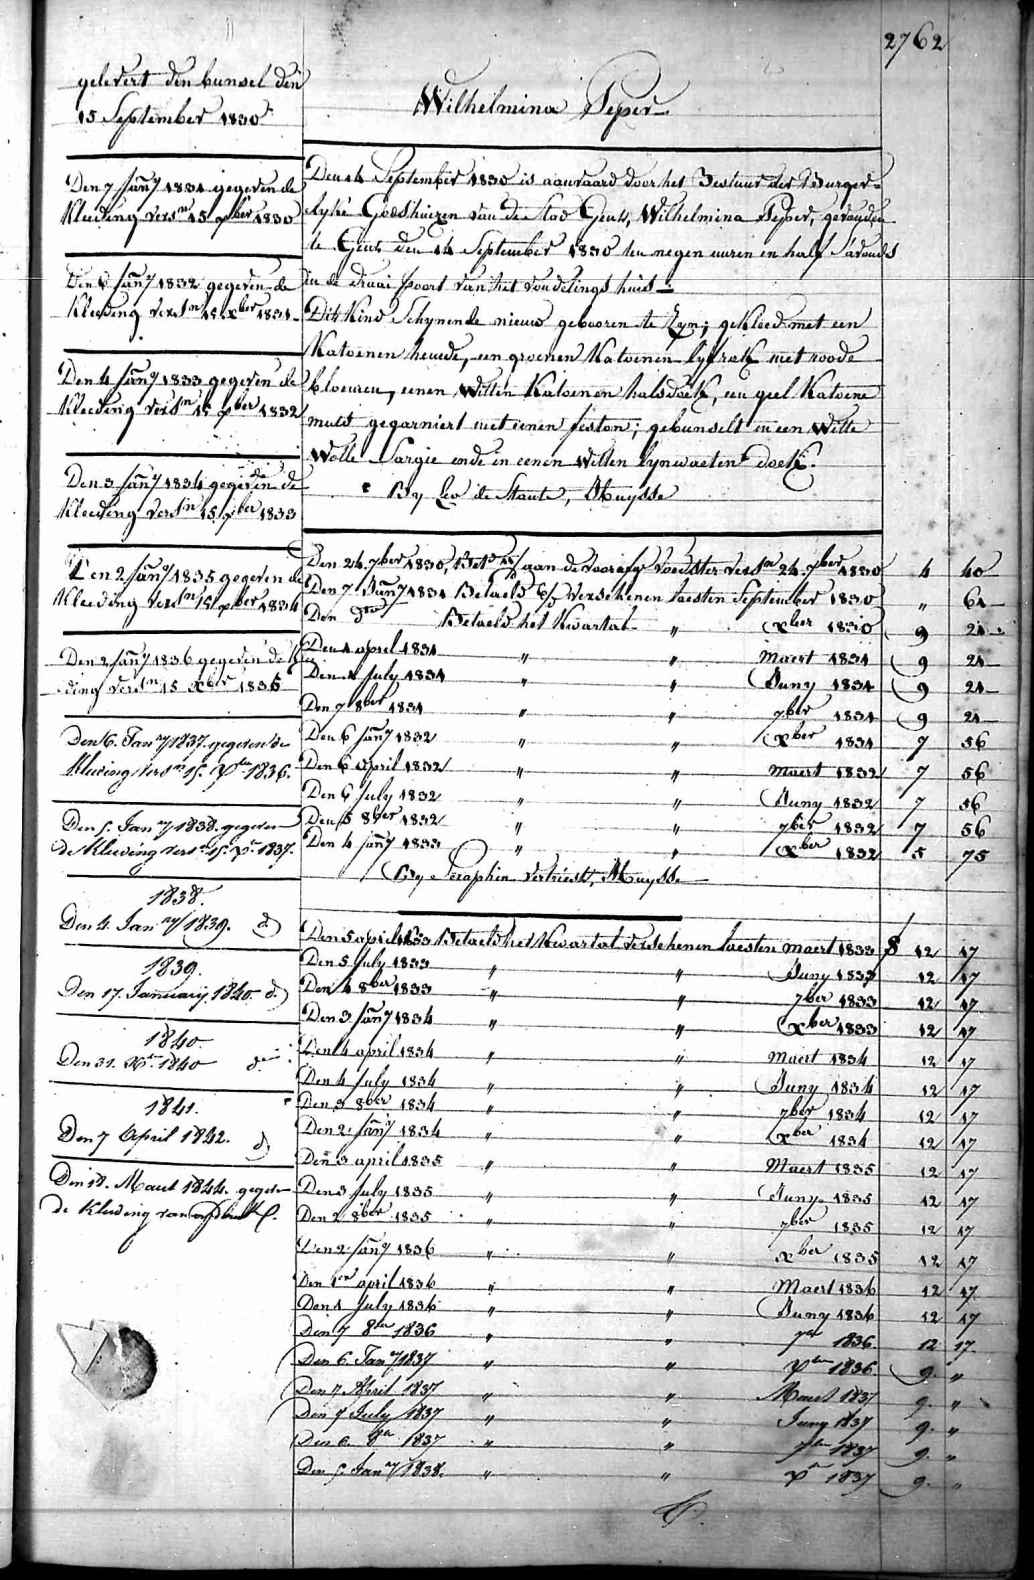 2762
gelevert den bunsel den
15 September 1830
Wilhelmina Peper
Den 7 Janÿ 1831 gegeven de
Kleeding versn 15 xber 1830
Den 6 Janÿ 1832 gegeven de
Kleeding versn 15 xber 1831
Den 4 Janÿ 1833 gegeven de
Kleeding versn 15 xber 1832
Den 3 Janÿ 1834 gegeven de
Kleeding versn 15 xber 1833
Den 2 Janÿ 1835 gegeven de
Kleeding versn 15 xber 1834
Den 2 Janÿ 1836 gegeven de Klee
ding versn 15 xber 1835
Den 6. Janry 1837. gegeven de
Kleeding versn 15. Xber 1836.
Den 5. Janry 1838. gegeven
de Kleeding versn 15. Xr 1837.
1838.
Den 4. Janry 1839. do
1839.
Den 17. January 1840. do
1840.
Den 31. Xr 1840 do
1841.
Den 7 April 1842. do
Den 18. Maert 1844. gegeven
de Kleeding van
Den 14 September 1830 is aanvaard door het Bestuur der Burger=
lyke Godshuizen van de Stad Gent, Wilhelmina Peper, gevonden
te Gent den 14 September 1830 ten negen uuren en half s'avonds
in de draai poort van het vondelings huis
Dit Kind Schynende nieuw gebooren te Zyn; gekleed met een
Katoenen hemde, een groenen Katoenen lyfrok met roode
bloemen, eenen Witten Katoenen halsdoek, een geel Katoene
muts gegarniert met eenen feston; gebunselt in een Witte
Wolle Sargie ende in eenen Witten lynwaeten doek.
By Leo de Staute, Muysse
Den 24 7ber 1830, Betd aan de voorafge voedster versn 24 7ber 1830 4 40
Den 7 Janÿ 1831 Betaeld verschenen laesten September 1830 " 64
Den do Betaeld het Kwartal " xber 1830 9 24
Den 1 april 1831 " " Maert 1831 9 24
Den 1 July 1831 " " Juny 1831 9 24
Den 7 8ber 1831 " " 7ber 1831 9 24
Den 6 Janÿ 1832 " " xber 1831 7 56
Den 6 April 1832 " " Maert 1832 7 56
Den 6 July 1832 " " Juny 1832 7 56
Den 5 8ber 1832 " " 7ber 1832 7 56
Den 4 Janÿ 1833 " " xber 1832 5 75
By Seraphin Vertriest, Muysse
Den 5 april 1833 Betaeld het Kwartal verschenen laesten Maert 1833 12 17
Den 5 July 1833 " " Juny 1833 12 17
Den 4 8ber 1833 " " 7ber 1833 12 17
Den 3 Janÿ 1834 " " xber 1833 12 17
Den 4 april 1834 " " Maert 1834 12 17
Den 4 July 1834 " " Juny 1834 12 17
Den 3 8ber 1834 " " 7ber 1834 12 17
Den 2 Janÿ 1834 " " xber 1834 12 17
Den 3 april 1835 " " Maert 1835 12 17
Den 3 July 1835 " " Juny 1835 12 17
Den 2 8ber 1835 " " 7ber 1835 12 17
Den 2 Janÿ 1836 " " xber 1835 12 17
Den 1er april 1836 " " Maert 1836 12 17
Den 1 July 1836 " " Juny 1836 12 17
Den 7 8ber 1836 " " 7er 1836 12 17
Den 6 Janry 1837 " " Xber 1836 9. "
Den 7 April 1837 " " Maert 1837 9. "
Den 7 July 1837 " " Juny 1837 9. "
Den 6 8er 1837 " " 7ber 1837 9. "
Den 5 Janry 1838. " " Xr 1837 9. "